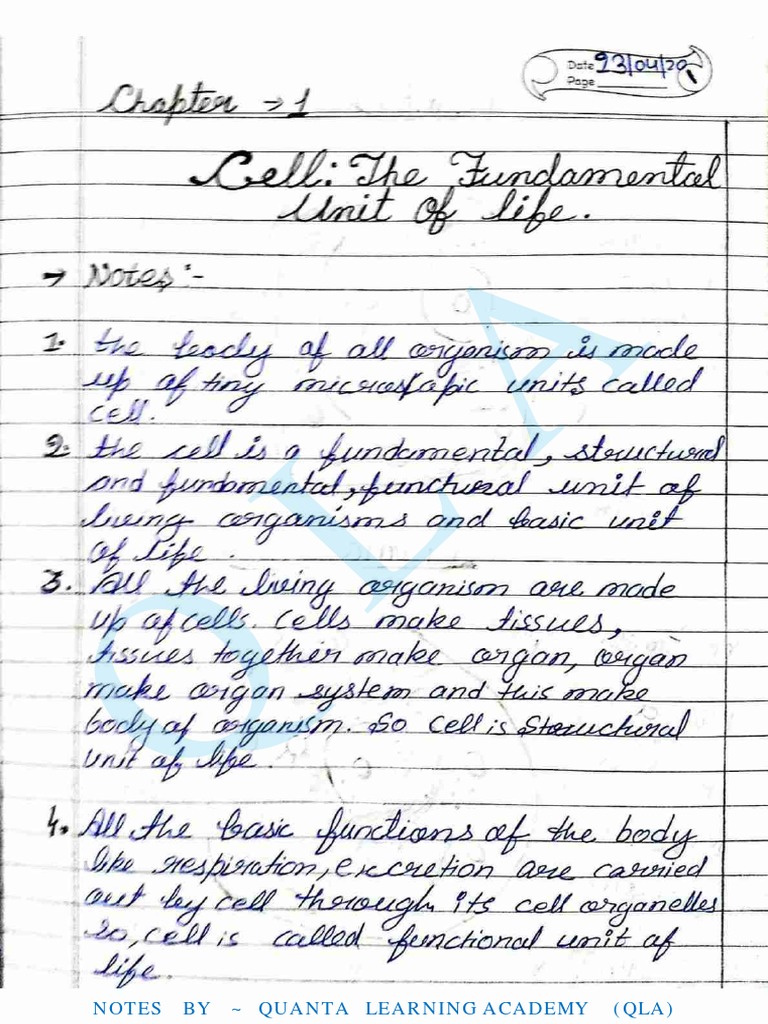 Date 23/04/20
Page 1
Chapter → 1
Cell: The Fundamental
Unit Of life.
→ Notes :-
1. the body of all organism is made
up of tiny microscopic units called
cell.
2. the cell is a fundamental, structural
and fundamental, functural unit of
living organisms and basic unit
of life.
3. All the living organism are made
up of cells. Cells make tissues,
tissues together make organ, organ
make organ system and this make
body of organism. So cell is Structural
unit of life.
4. All the basic functions of the body
like respiration, excretion are carried
out by cell through its cell organelles
so, cell is called functional unit of
life.
QLA
NOTES BY ~ QUANTA LEARNING ACADEMY (QLA)